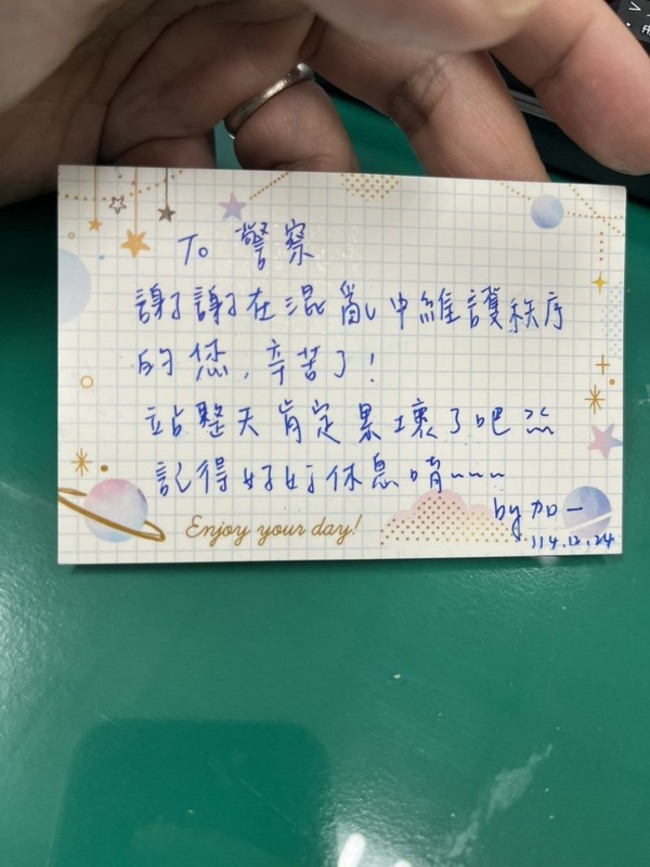 To 警察
謝謝在混亂中維護秩序
的您,辛苦了!
站整天肯定累壞了吧
記得好好休息唷~~~
by 加一
114.12.24
Enjoy your day!